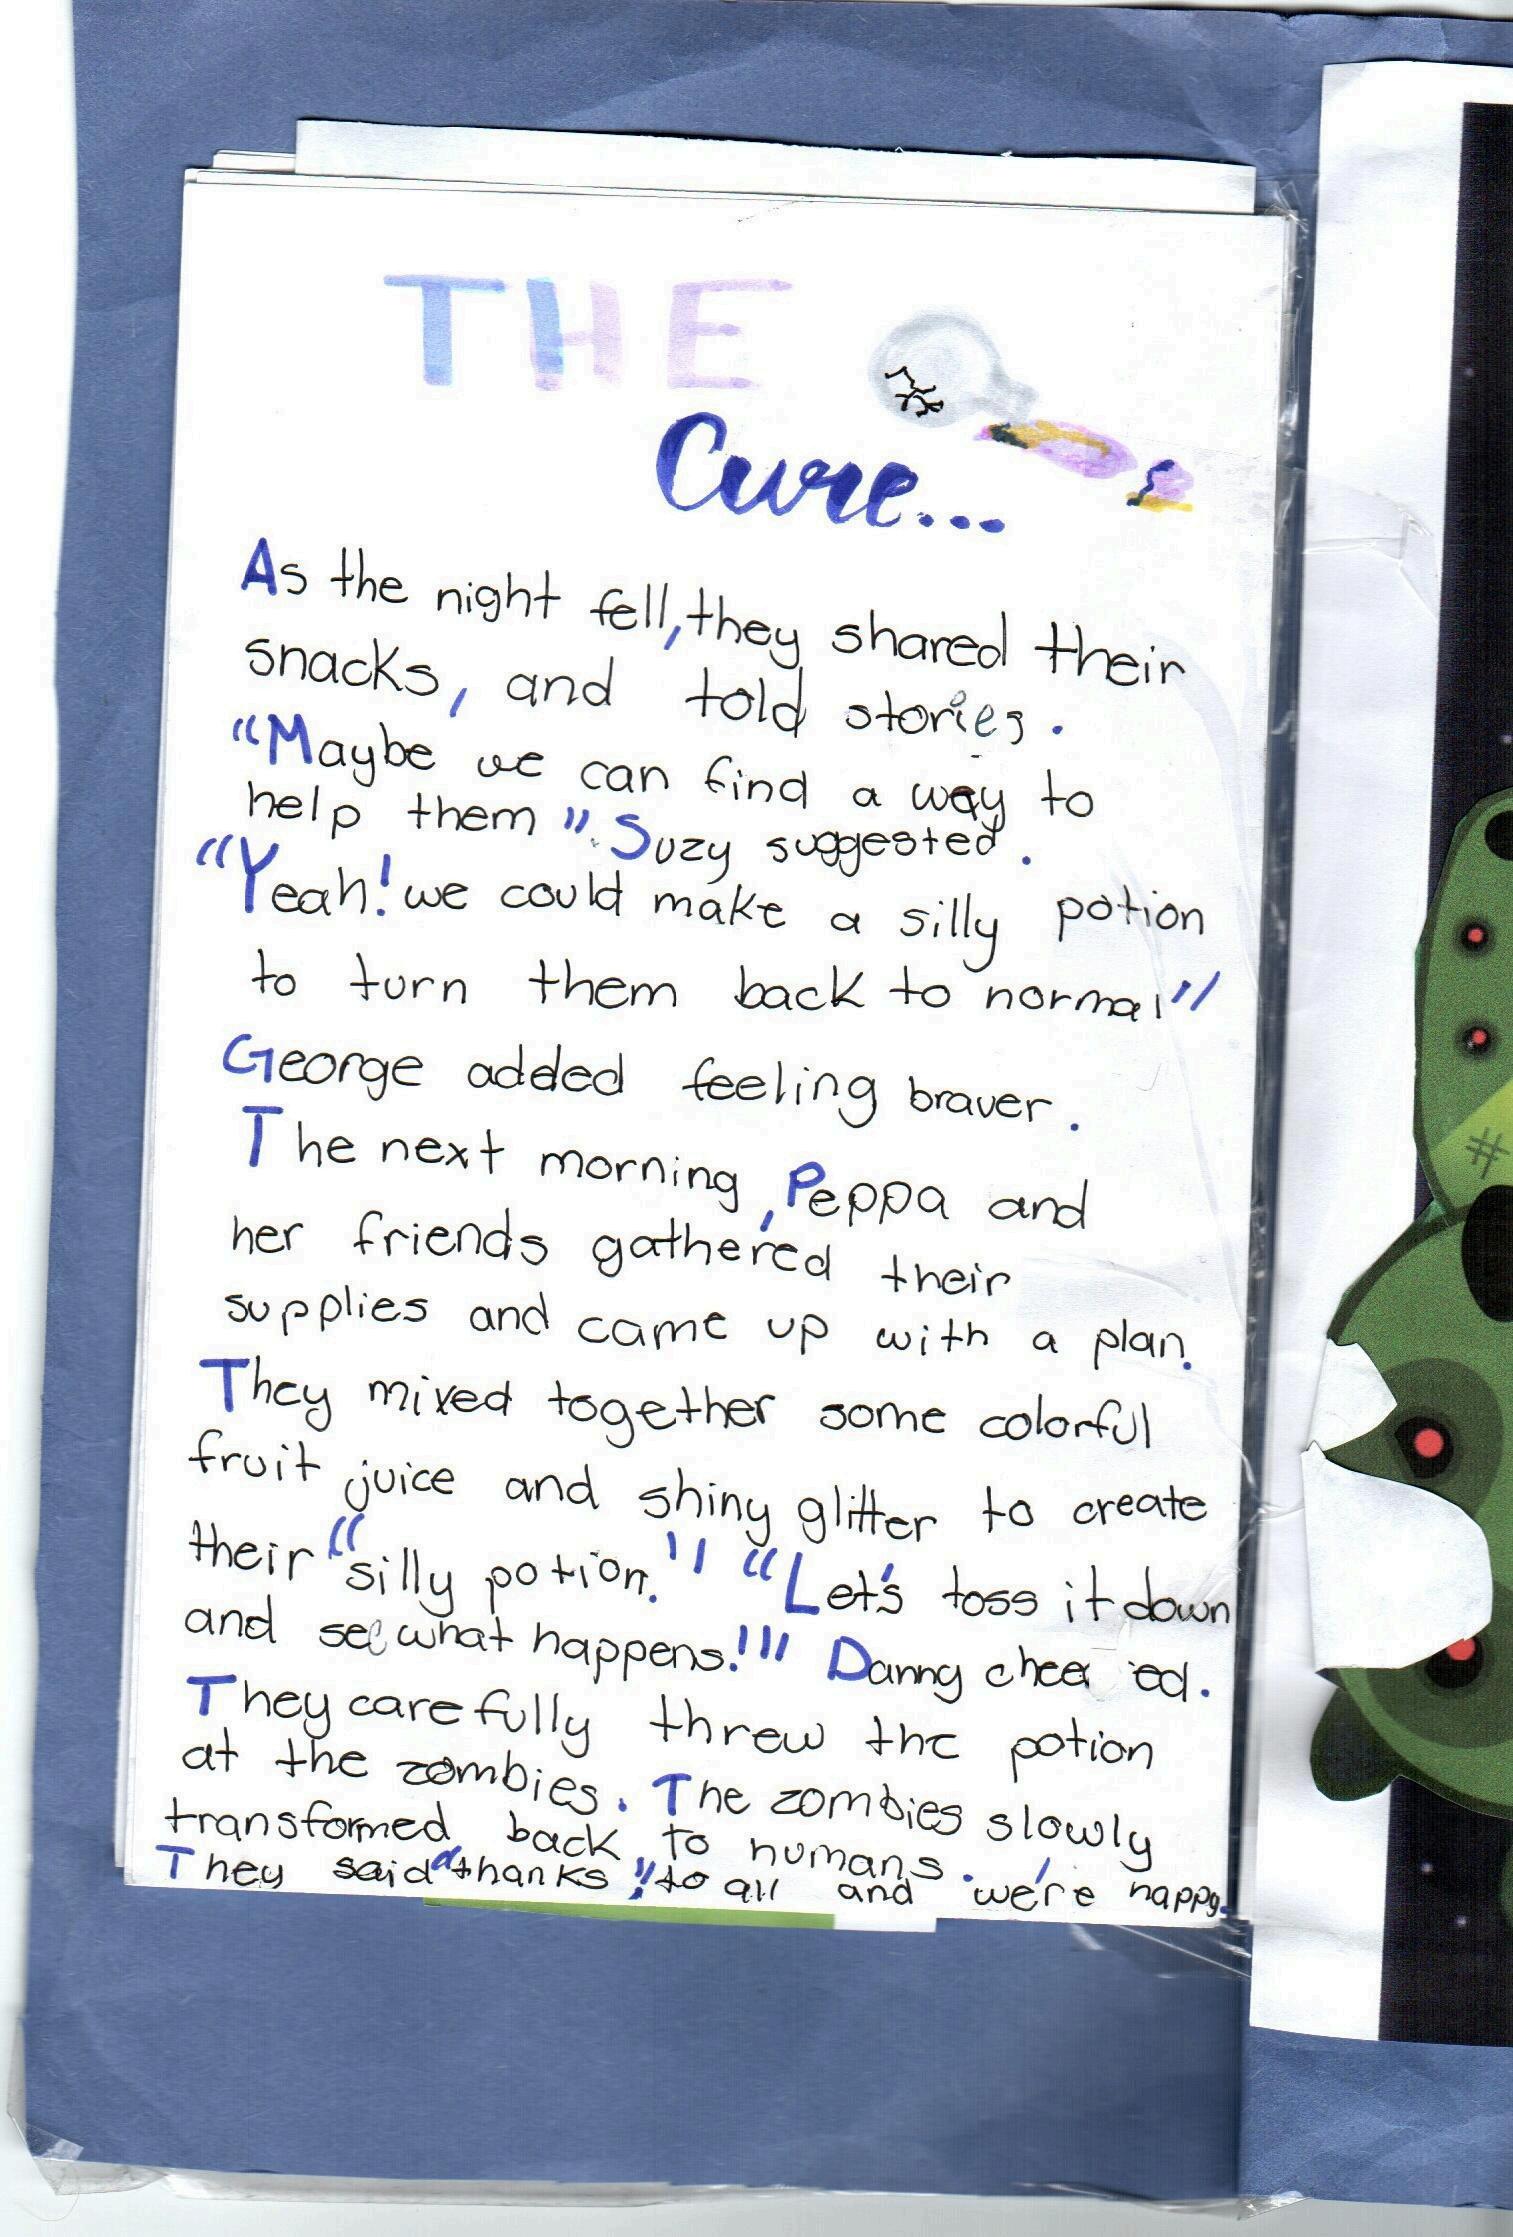 THE
Cure...
As the night fell, they shared their
snacks, and told stories.
"Maybe we can find a way to
help them". Suzy suggested.
"Yeah! we could make a silly potion
to turn them back to normal"
George added feeling braver.
The next morning, Peppa and
her friends gathered their
supplies and came up with a plan.
They mixed together some colorful
fruit juice and shiny glitter to create
their "silly potion." "Let's toss it down
and see what happens!" Danny cheered.
They carefully threw the potion
at the zombies. The zombies slowly
transformed back to humans.
They said "thanks!" to all and we're happy.
#